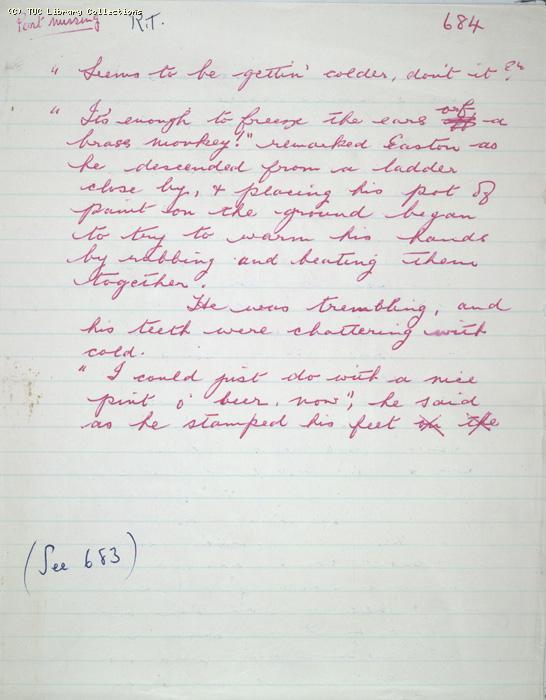 (C) TUC Library Collections
Part missing R.T. 684
" Seems to be gettin' colder, don't it?"
" It's enough to freeze the ears orf a
brass monkey!" remarked Easton as
he descended from a ladder
close by, & placing his pot of
paint on the ground began
to try to warm his hands
by rubbing and beating them
together.
He was trembling, and
his teeth were chattering with
cold.
" I could just do with a nice
pint o' beer, now", he said
as he stamped his feet on the
(See 683)